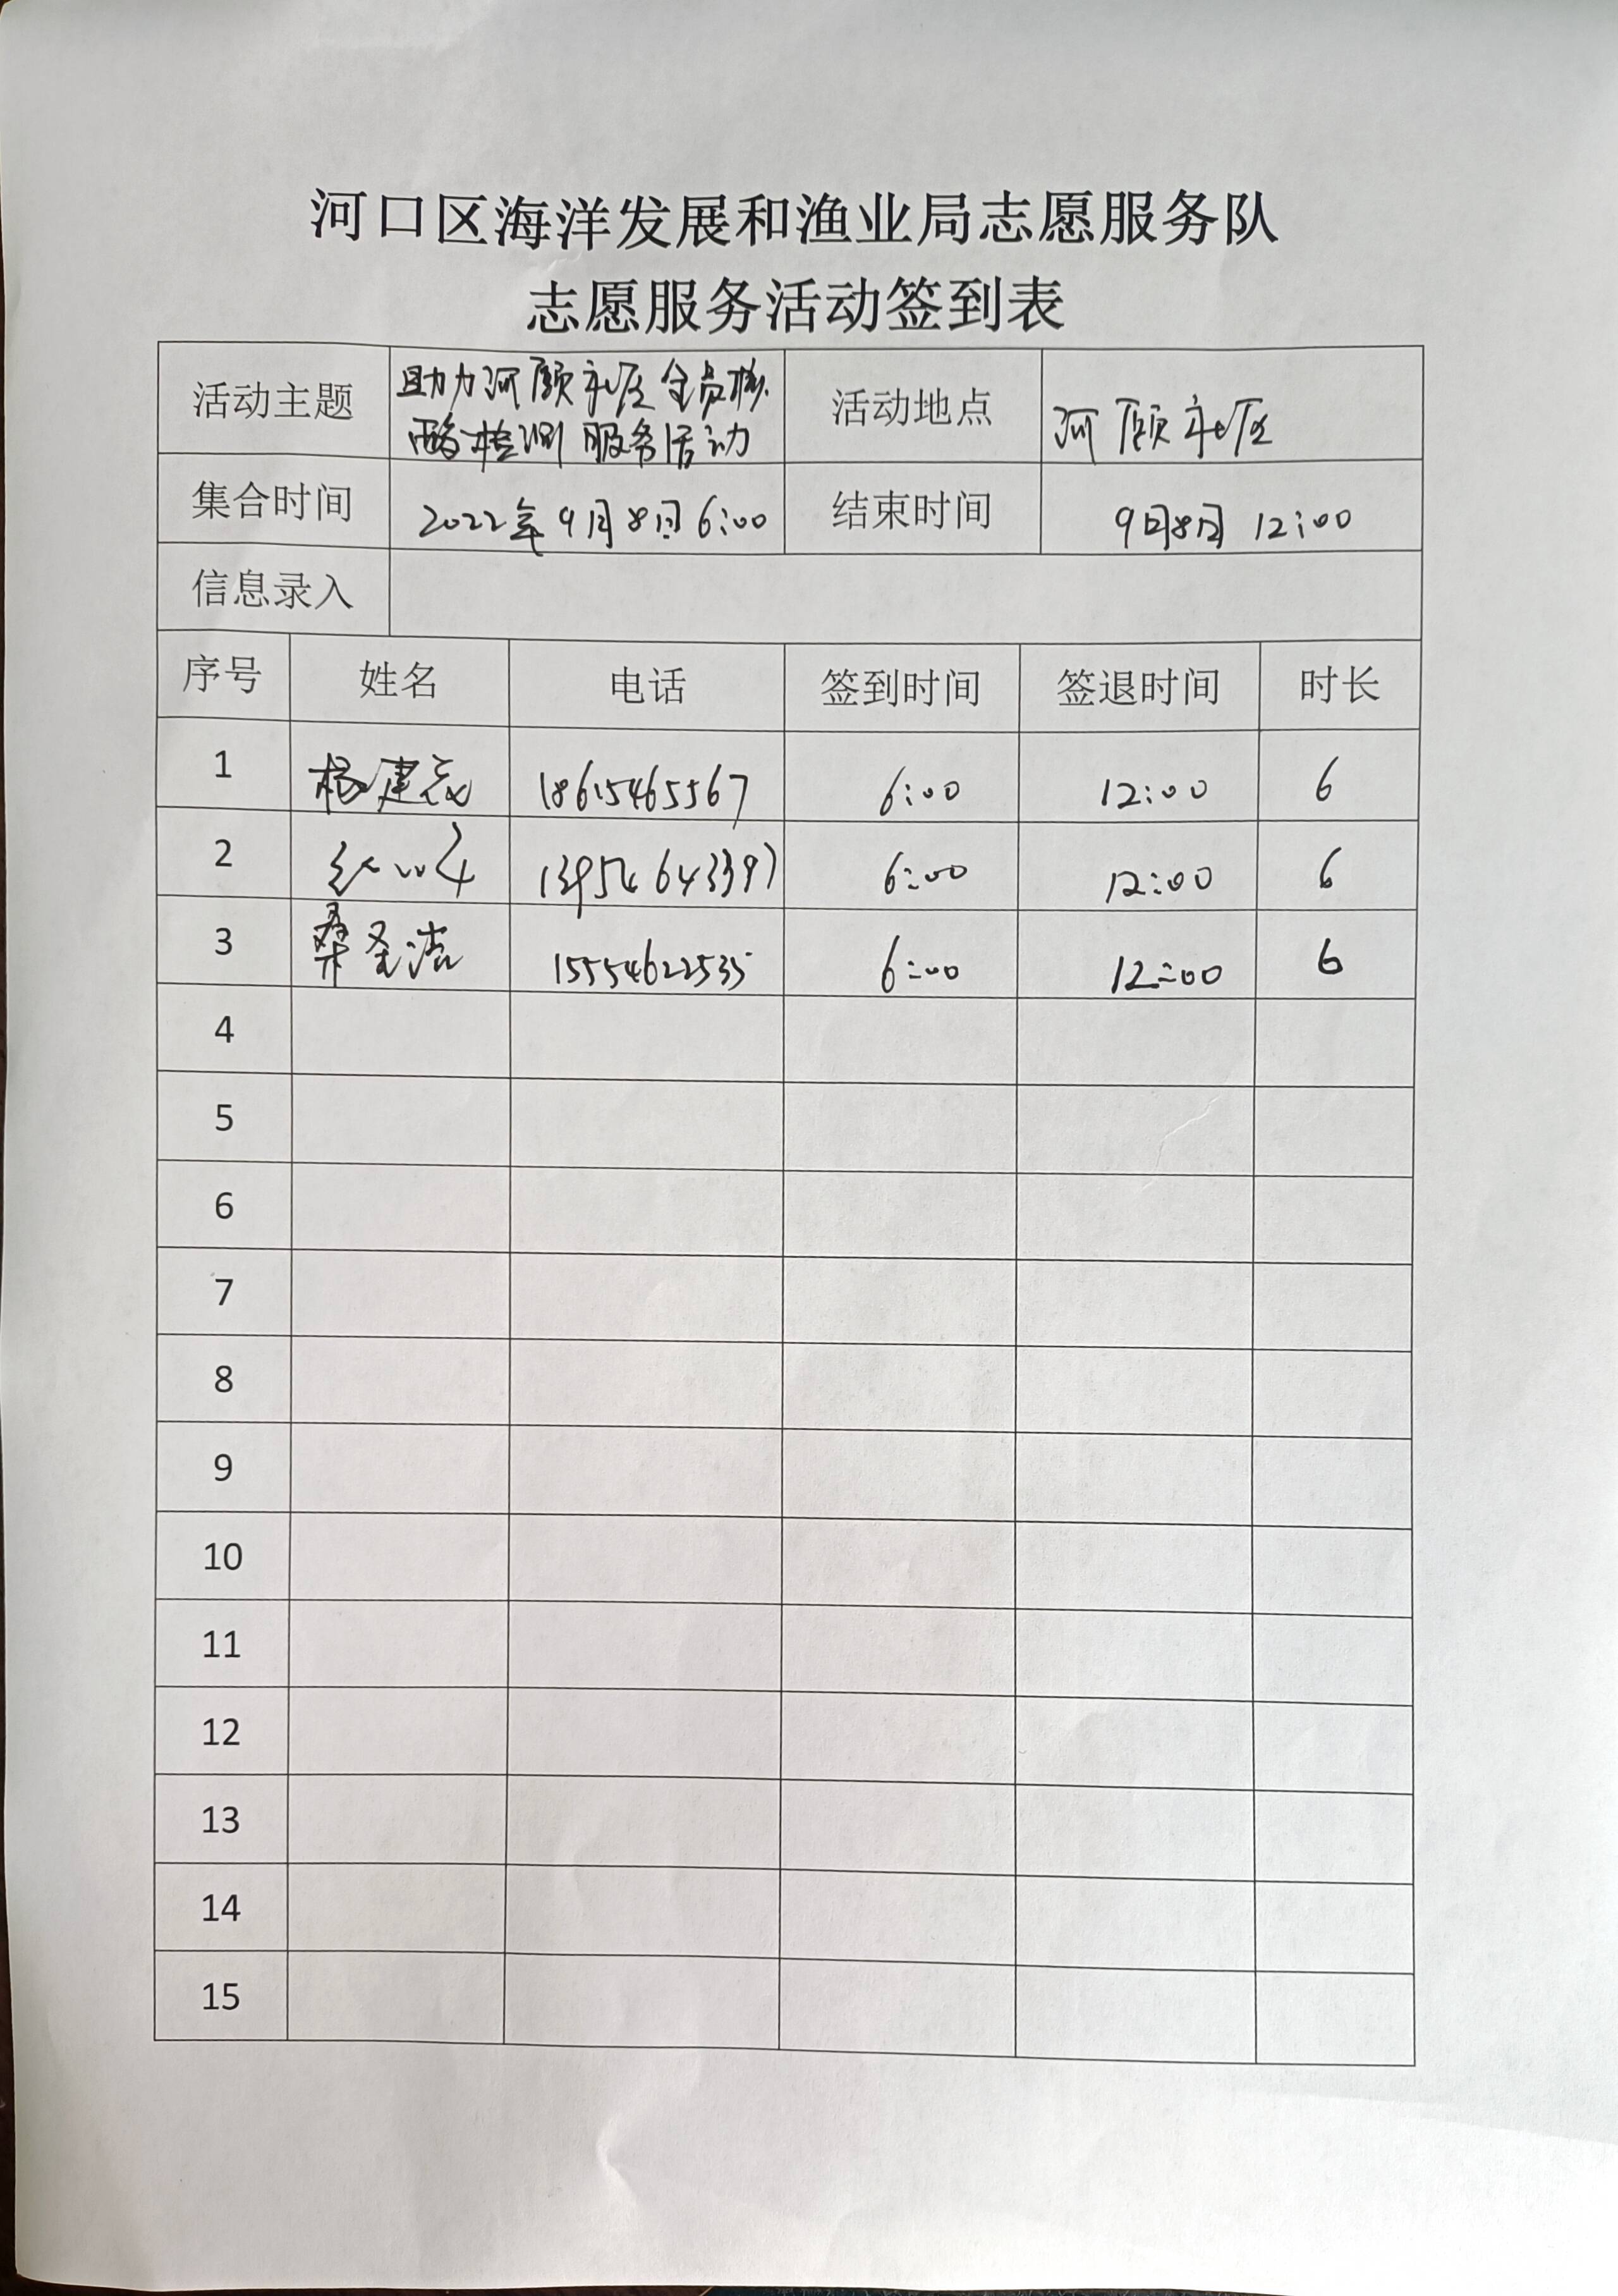 河口区海洋发展和渔业局志愿服务队
志愿服务活动签到表
活动主题 助力河颐社区全员核酸检测服务活动 活动地点 河颐社区
集合时间 2022年9月8日6:00 结束时间 9月8日 12:00
信息录入
序号 姓名 电话 签到时间 签退时间 时长
1 杨建 18615465567 6:00 12:00 6
2 6:00 12:00 6
3 桑圣洁 15554622535 6:00 12:00 6
4
5
6
7
8
9
10
11
12
13
14
15